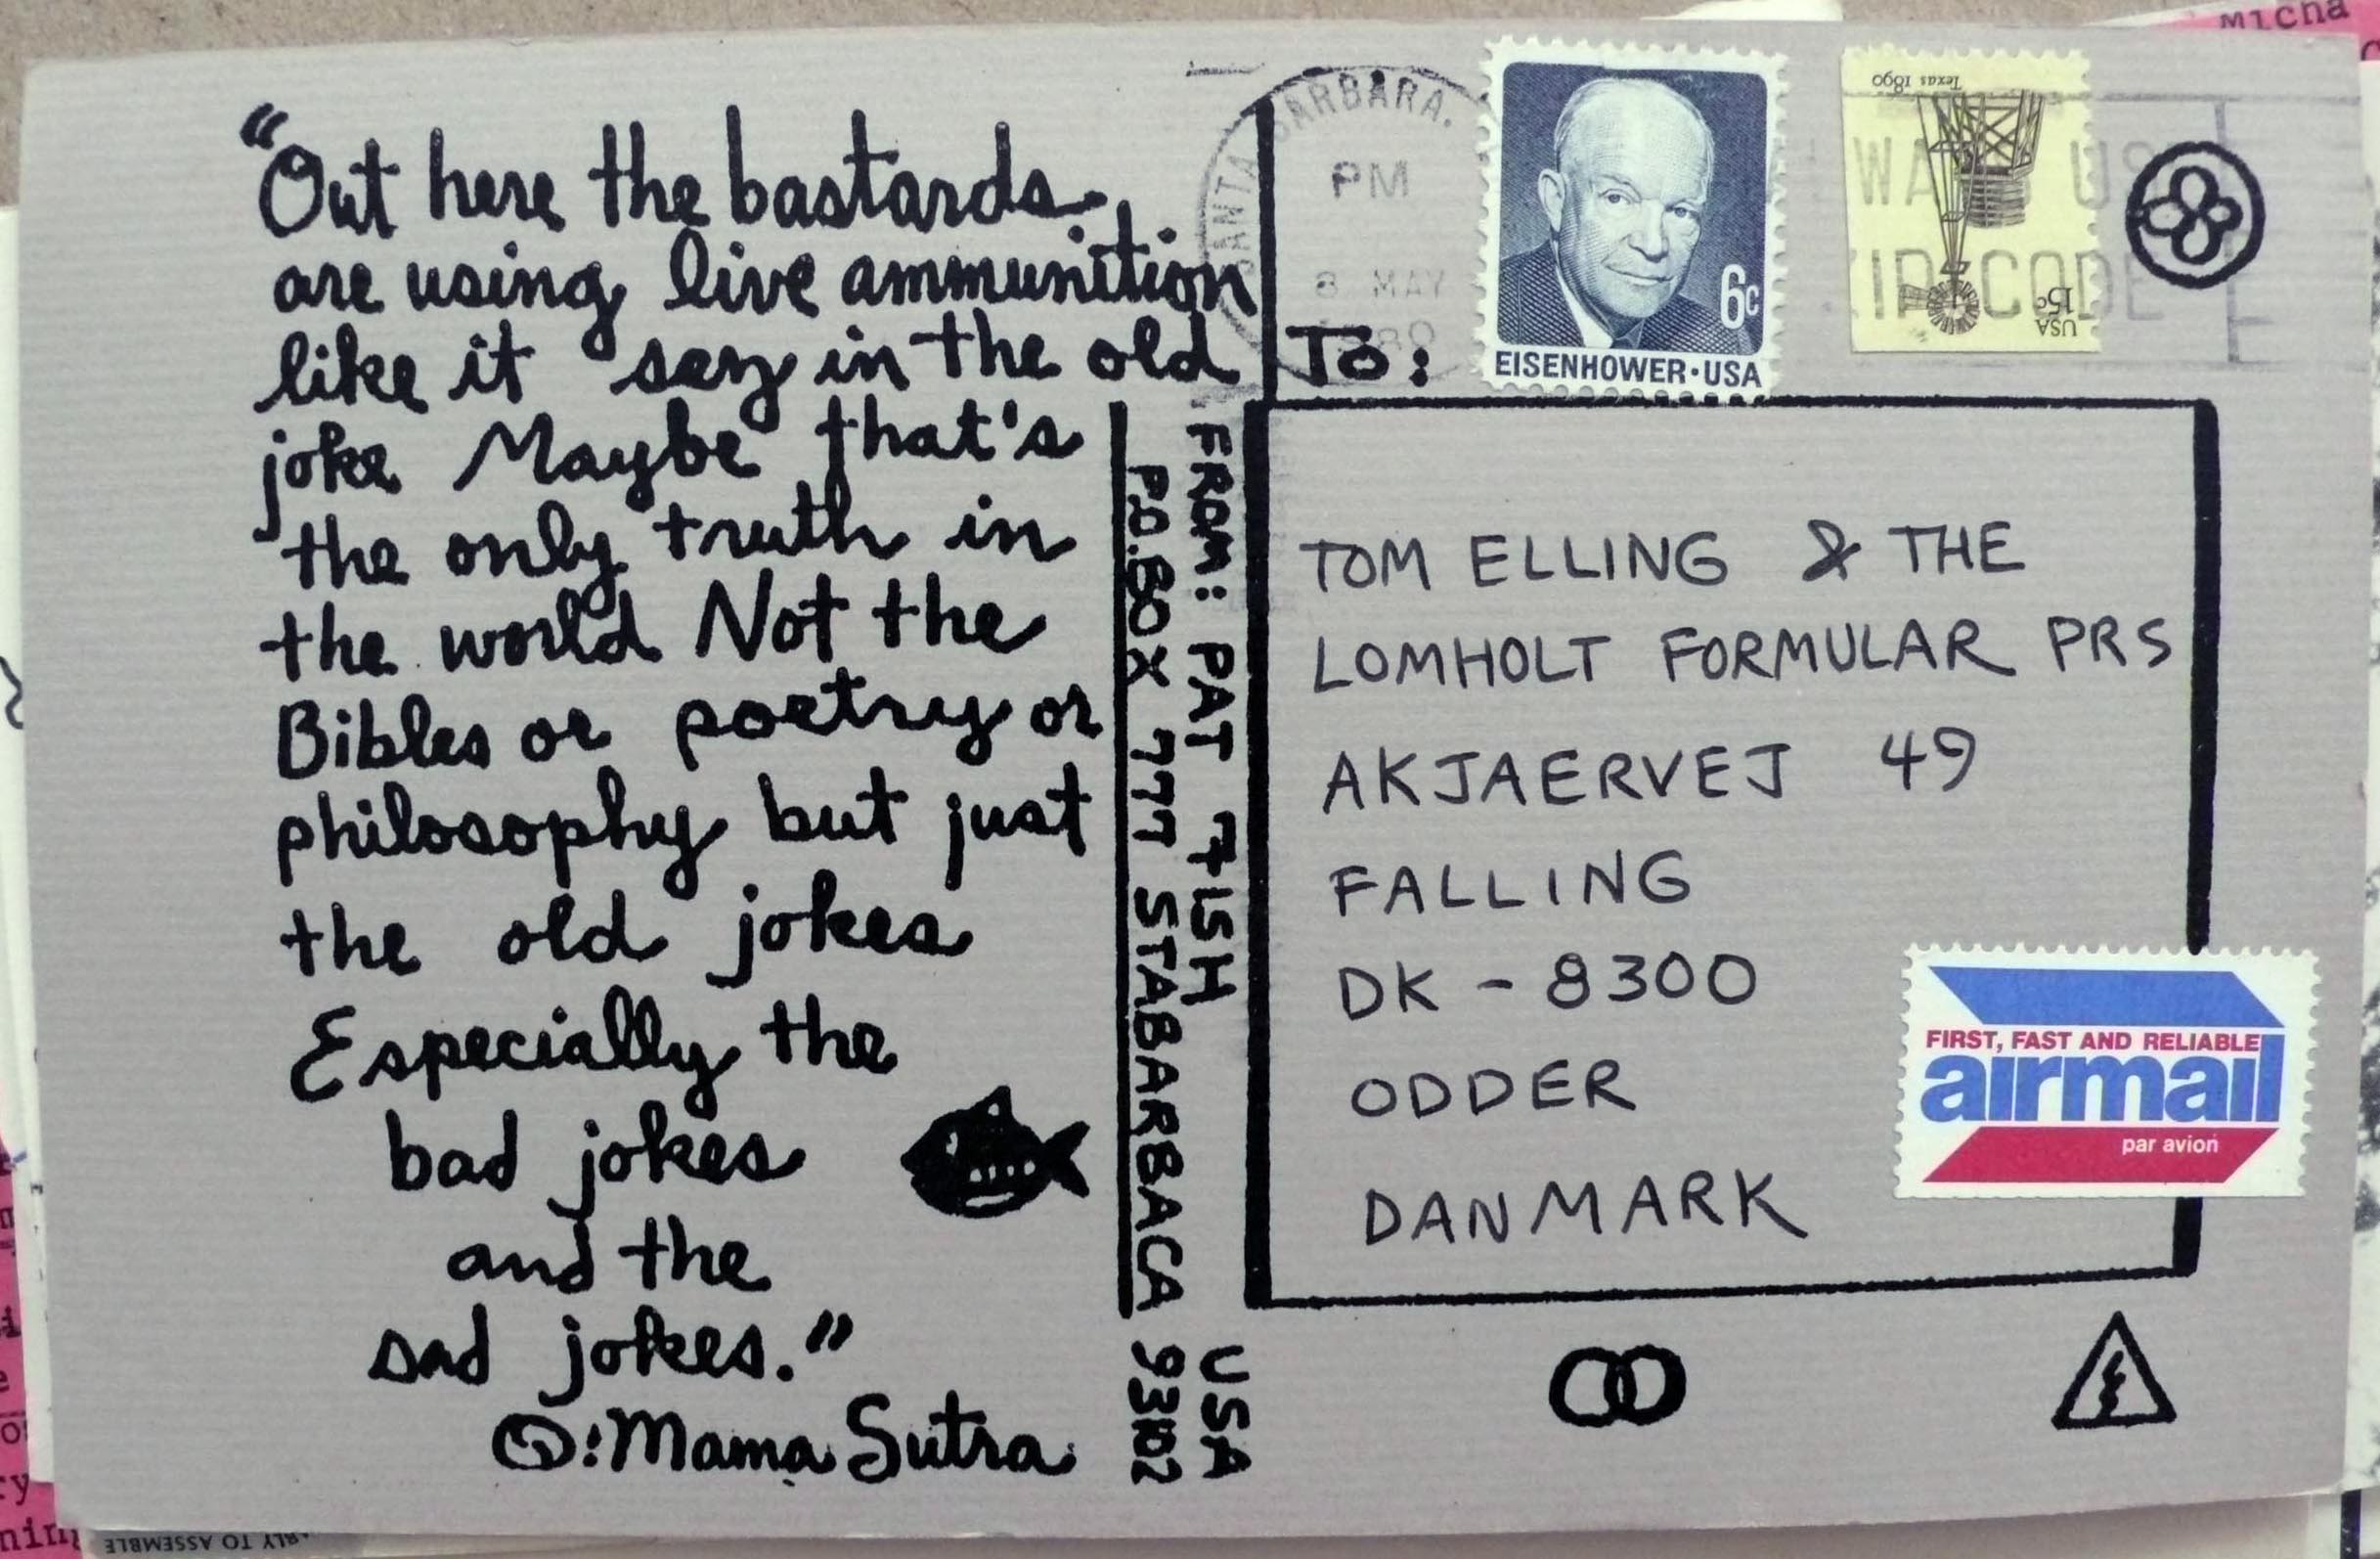 “Out here the bastards
are using live ammunition
like it say in the old
joke Maybe that's
the only truth in
the world Not the
Bibles or poetry or
philosophy but just
the old jokes
Especially the
bad jokes
and the
sad jokes.”
:Mama Sutra
FROM: PAT FISH USA
P.O.BOX 777 STABARBACA 93102
SANTA BARBARA.
PM
8 MAY
TO:
6c
EISENHOWER·USA
Texas 1890
USA
15c
ZIP CODE
TOM ELLING & THE
LOMHOLT FORMULAR PRS
AKJAERVEJ 49
FALLING
DK - 8300
ODDER
DANMARK
FIRST, FAST AND RELIABLE
airmail
par avion
Micha
RLY TO ASSEMBLE